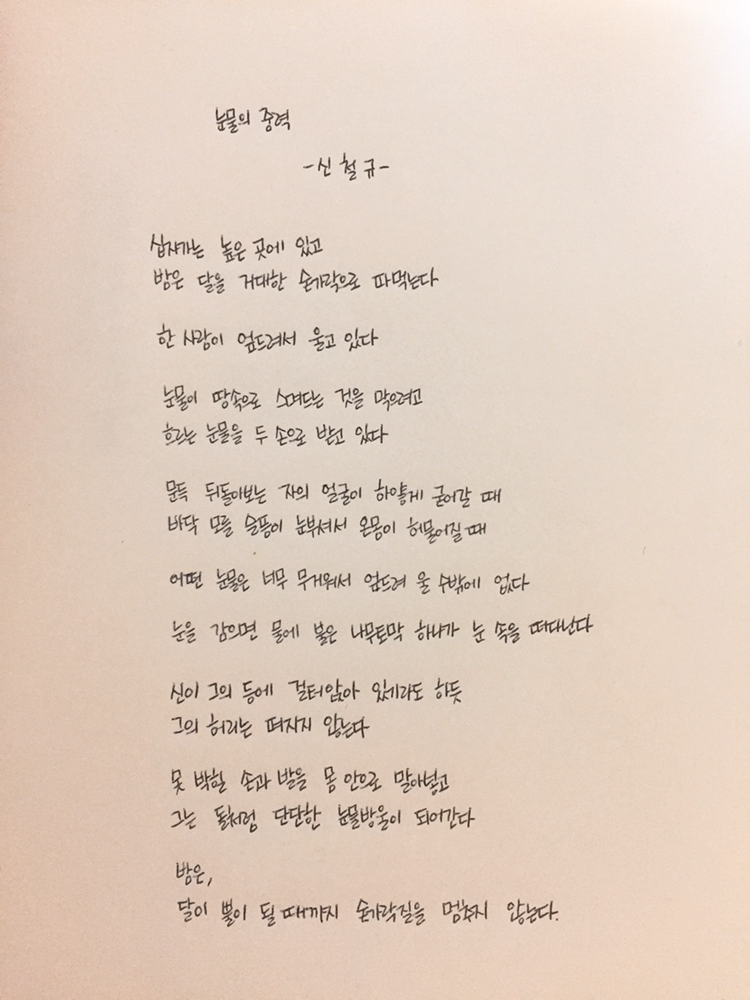 눈물의 중력
-신철규-
십자가는 높은 곳에 있고
밤은 달을 거대한 숟가락으로 파먹는다
한 사람이 엎드려서 울고 있다
눈물이 땅속으로 스며드는 것을 막으려고
흐르는 눈물을 두 손으로 받고 있다
문득 뒤돌아보는 자의 얼굴이 하얗게 굳어갈 때
바닥 모를 슬픔이 눈부셔서 온몸이 허물어질 때
어떤 눈물은 너무 무거워서 엎드려 울 수밖에 없다
눈을 감으면 물에 불은 나무토막 하나가 눈 속을 떠다닌다
신이 그의 등에 걸터앉아 있기라도 하듯
그의 허리는 펴지지 않는다
못 박힌 손과 발을 몸 안으로 말아넣고
그는 돌처럼 단단한 눈물방울이 되어간다
밤은,
달이 뿔이 될 때까지 숟가락질을 멈추지 않는다.